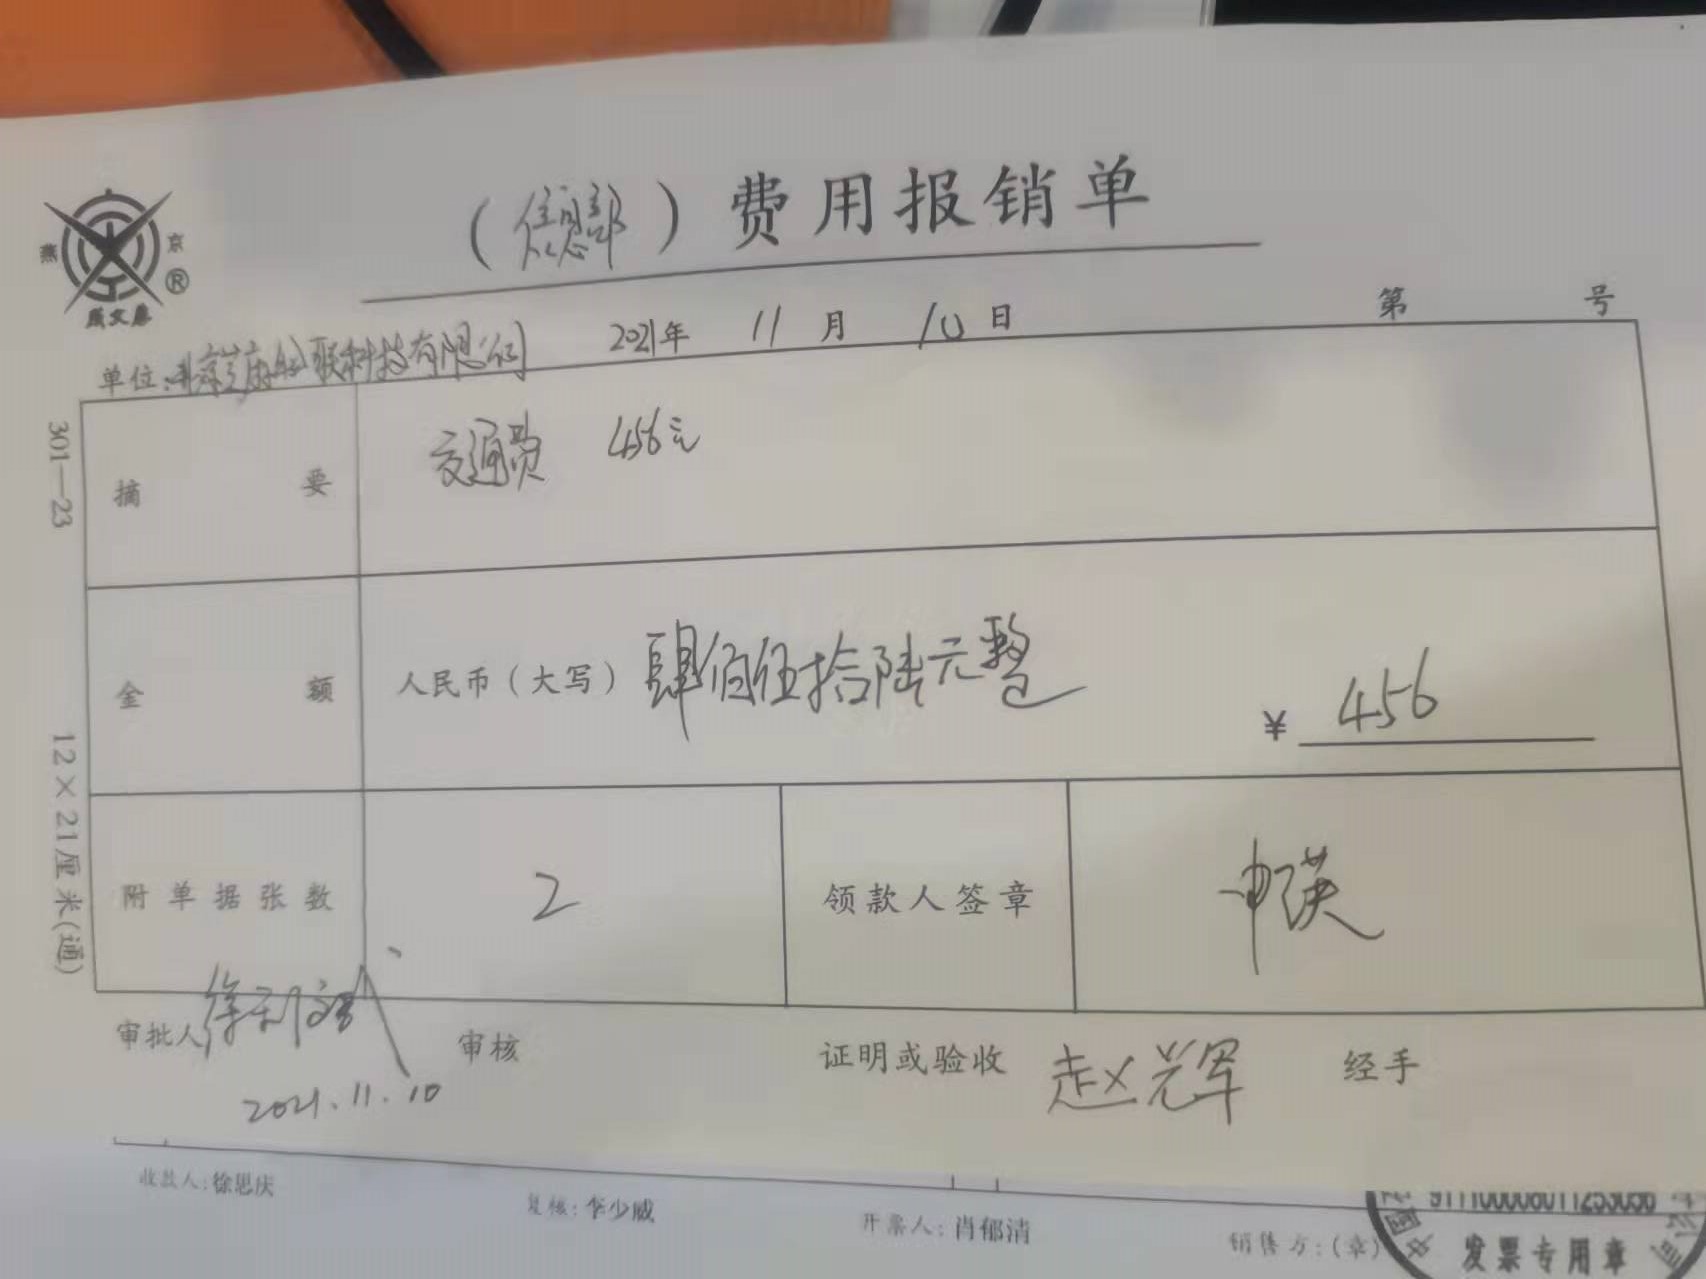 （信息部）费用报销单
燕 京
®
成文厚
第 号
单位: 2021年 11月 10日
301—23
12×21厘米(通)
摘要 交通费 456元
金额 人民币（大写）肆佰伍拾陆元整 ¥ 456
附单据张数 2 领款人签章
审批人 审核 证明或验收 赵光辉 经手
2021.11.10
收款人:徐思庆 复核:李少威 开票人:肖郁清 销售方:(章)
发票专用章